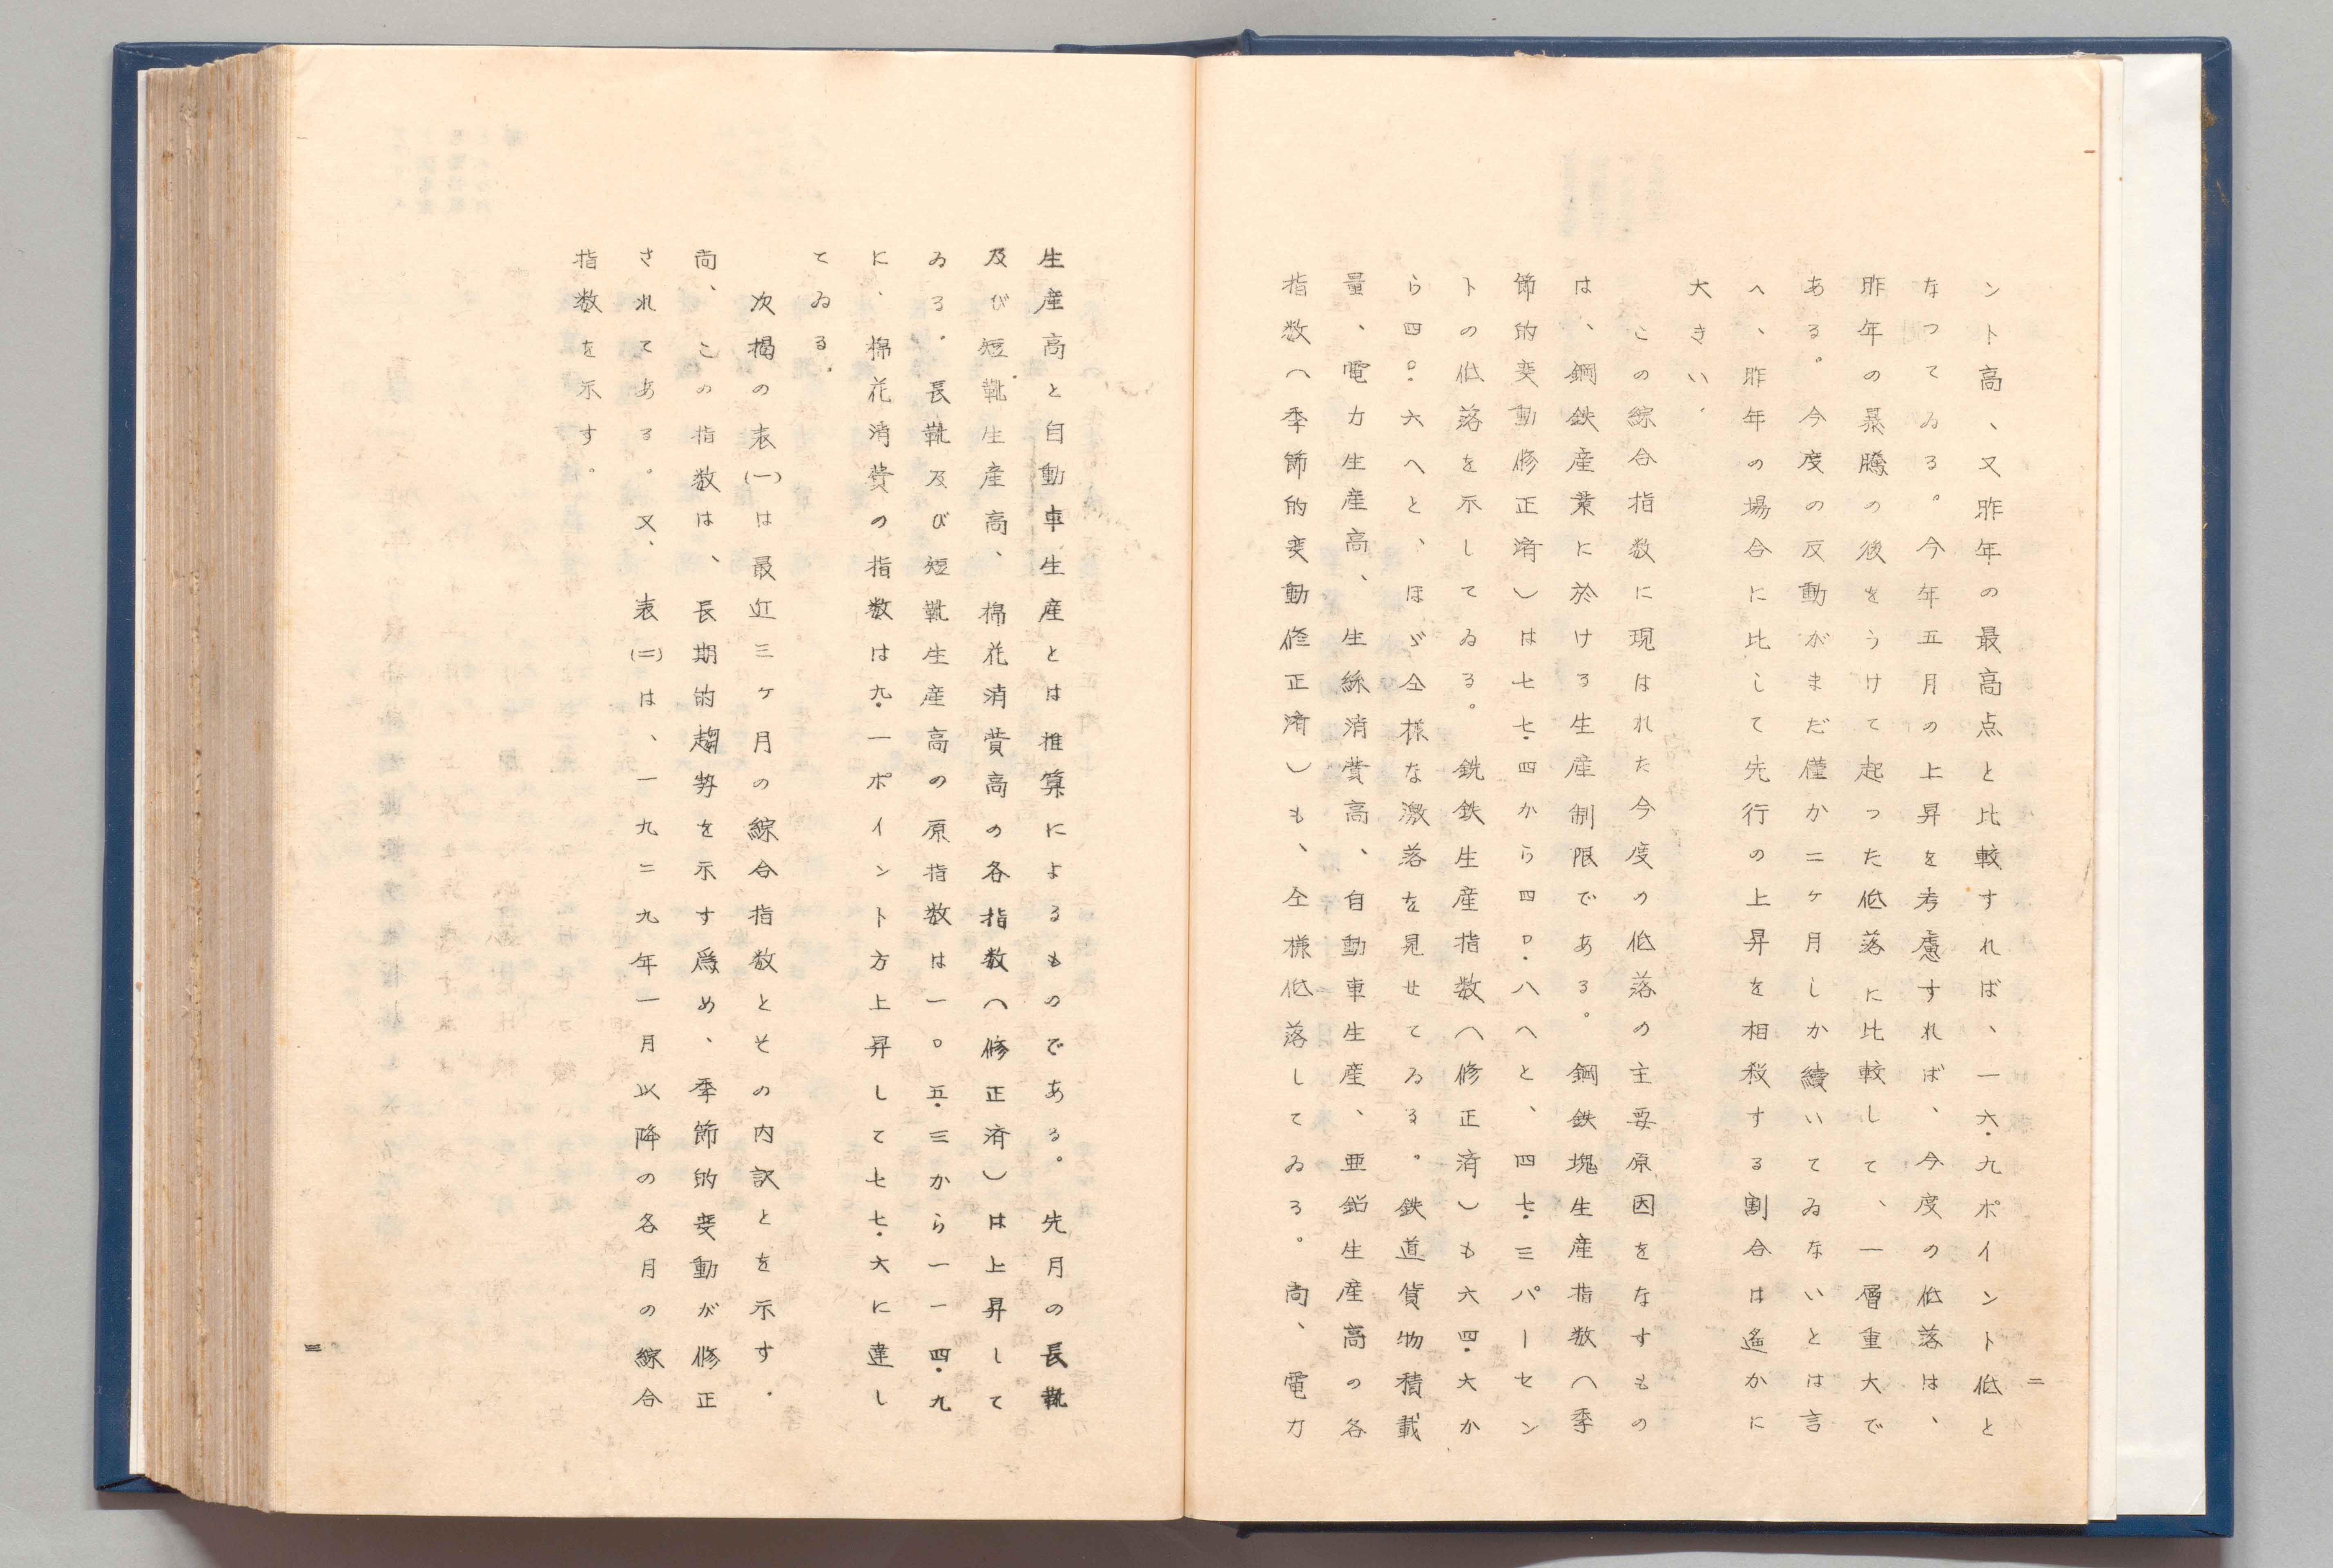 二
ント高、又昨年の最高点と比較すれば、一六・九ポイント低と
なつてゐる。今年五月の上昇を考慮すれば、今度の低落は、
昨年の暴騰の後をうけて起つた低落に比較して、一層重大で
ある。今度の反動がまだ僅か二ヶ月しか續いてゐないとは言
へ、昨年の場合に比して先行の上昇を相殺する割合は遙かに
大きい。
この綜合指数に現はれた今度の低落の主要原因をなすもの
は、鋼鉄産業に於ける生産制限である。鋼鉄塊生産指数（季
節的変動修正済）は七七・四から四〇・八へと、四七・三パーセン
トの低落を示してゐる。銑鉄生産指数（修正済）も六四・六か
ら四〇・六へと、ほゞ仝様な激落を見せてゐる。鉄道貨物積載
量、電力生産高、生絲消費高、自動車生産、亜鉛生産高の各
指数（季節的変動修正済）も、仝様低落してゐる。尚、電力
生産高と自動車生産とは推算によるものである。先月の長靴
及び短靴生産高、棉花消費高の各指数（修正済）は上昇して
ゐる。長靴及び短靴生産高の原指数は一〇五・三から一一四・九
に、棉花消費の指数は九・一ポイント方上昇して七七・六に達し
てゐる。
次掲の表(一)は最近三ヶ月の綜合指数とその内訳とを示す。
尚、この指数は、長期的趨勢を示す為め、季節的変動が修正
されてある。又、表(二)は、一九二九年一月以降の各月の綜合
指数を示す。
三